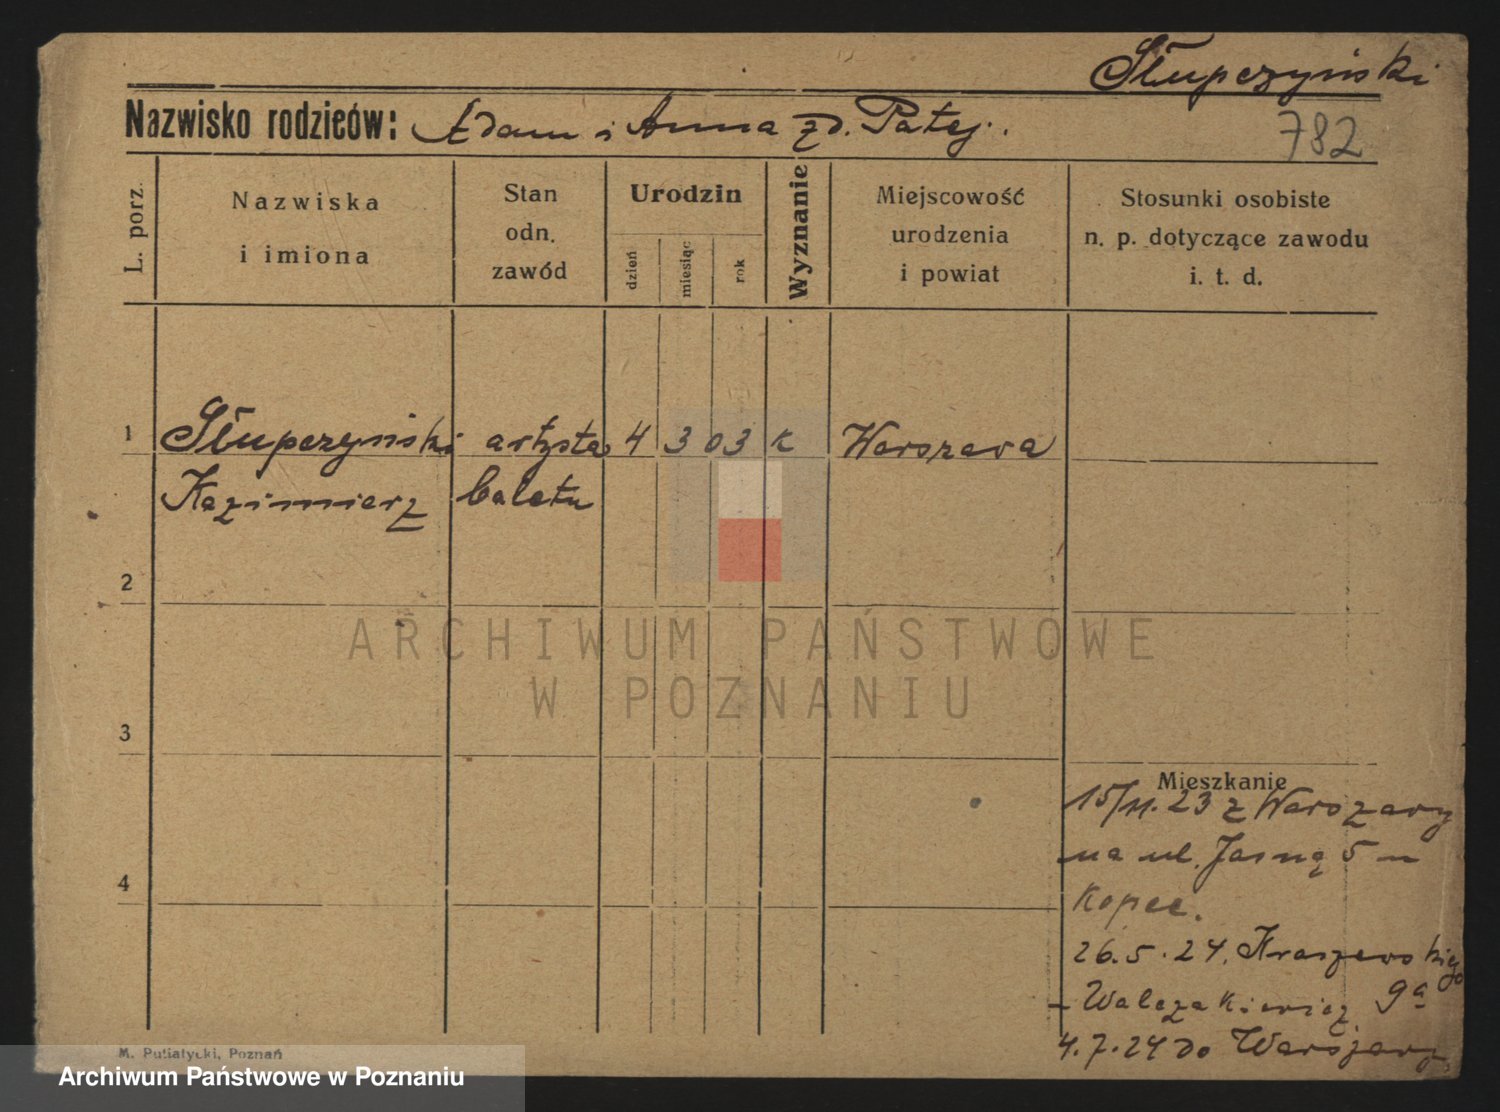 Słupczyński
Nazwisko rodzieów: Adam i Anna zd. Patej.
782
L. porz.
Nazwiska
i imiona
Stan
odn.
zawód
Urodzin
dzień
miesiąc
rok
Wyznanie
Miejscowość
urodzenia
i powiat
Stosunki osobiste
n. p. dotyczące zawodu
i. t. d.
1 Słupczyński artysta 4 3 03 k Warszawa
Kazimierz baletu
2
3
4
Mieszkanie
15/11.23 z Warszawy
na ul. Jasną 5 u
Kopec.
26.5.24. Kraszewskiego
- Walczakiewicz 9a
4.7.24 do Warszawy
M. Putiatycki, Poznań
ARCHIWUM PAŃSTWOWE
W POZNANIU
Archiwum Państwowe w Poznaniu